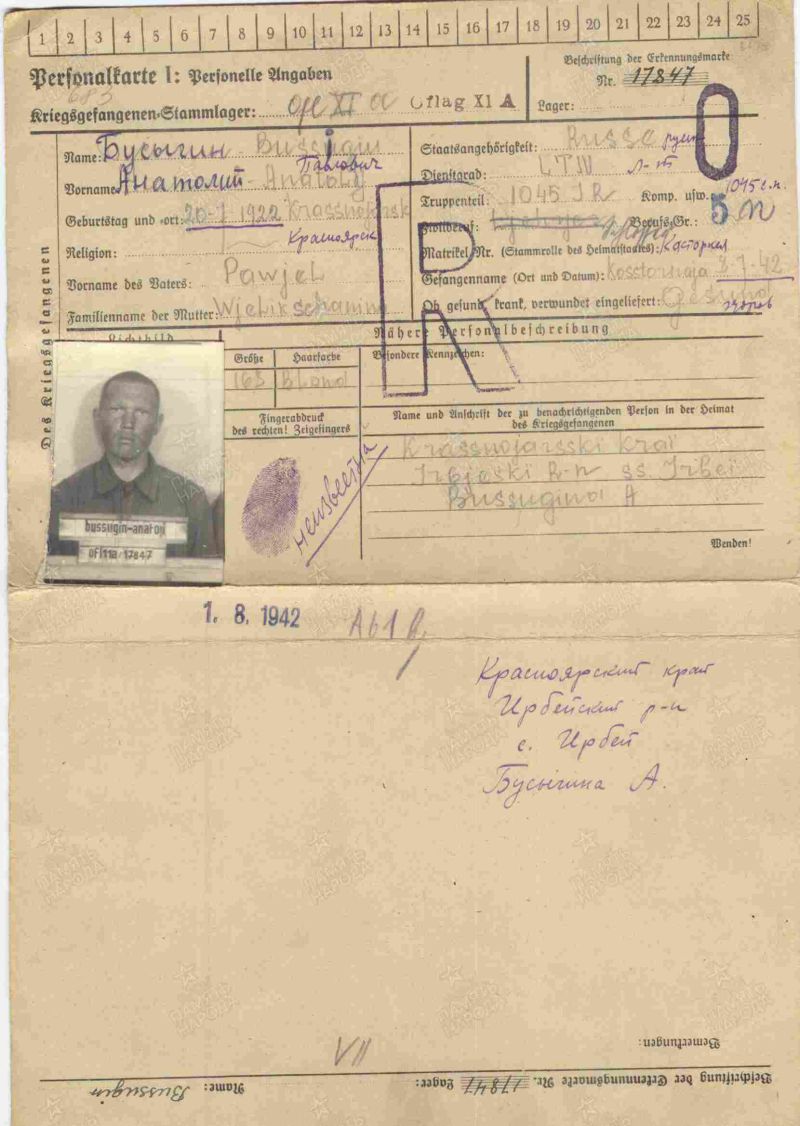 1 2 3 4 5 6 7 8 9 10 11 12 13 14 15 16 17 18 19 20 21 22 23 24 25
Personalkarte I: Personelle Angaben
Beschriftung der Erkennungsmarke
Nr. 17847
Kriegsgefangenen-Stammlager: Of XI a Oflag XI A
Lager:
Des Kriegsgefangenen
Name: Бусыгин - Bussugin
Павлович
Vorname: Анатолий - Anatolij
Geburtstag und -ort: 20-7 1922 Krassnojarsk
Красноярск
Religion:
Vorname des Vaters: Pawjel
Familienname der Mutter: Wjelikschanina
Staatsangehörigkeit: Russe
Dienstgrad: LTN л-т
Truppenteil: 1045 JR Komp. usw. 1045 с.п.
Zivilberuf: Berufs-Gr.: 5 n
Matrikel Nr. (Stammrolle des Heimatstaates): Касторная
Gefangenname (Ort und Datum): Kosstornaja 3-7-42
Ob gesund, krank, verwundet eingeliefert: Gesund
здоров
Lichtbild
Nähere Personalbeschreibung
Größe Haarfarbe Besondere Kennzeichen:
163 Blond
Fingerabdruck
des rechten! Zeigefingers
неизвестна
Name und Anschrift der zu benachrichtigenden Person in der Heimat
des Kriegsgefangenen
Krassnojarsski Krai
Irbjeski R-n ss. Irbei
Bussugina A
Wenden!
bussugin-anatoli
Of 11a 17847
1. 8. 1942
Красноярский край
Ирбейский р-н
с. Ирбей
Бусыгина А.
VII
Bemerkungen:
Beschriftung der Erkennungsmarke Nr. 17847 Lager: Name: Bussugin
ПАМЯТЬ НАРОДА